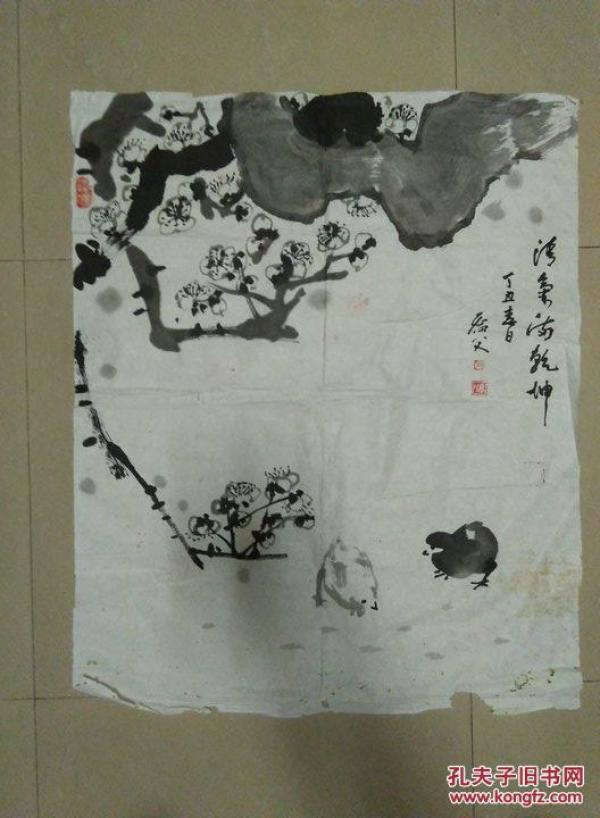 清气满乾坤
丁丑春日
孔夫子旧书网
www.kongfz.com